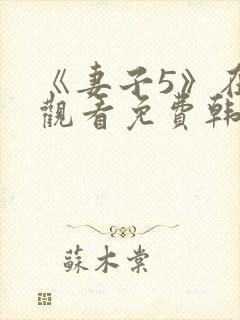 《妻子5》在
觀看免費韩
蘇木棠